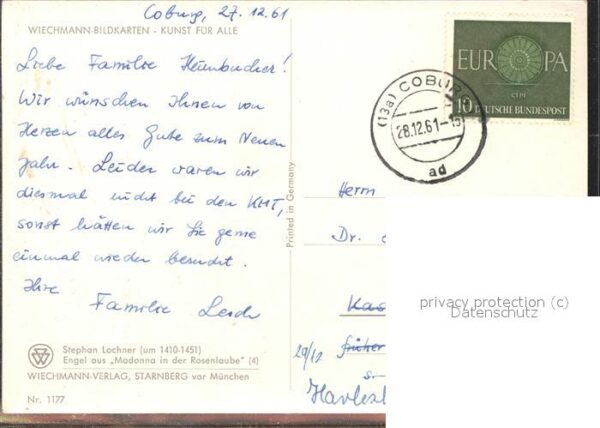 Coburg, 27.12.61
WIECHMANN-BILDKARTEN - KUNST FÜR ALLE
Liebe Familie Heunbucher!
Wir wünschen Ihnen von
Herzen alles Gute zum Neuen
Jahr. Leider waren wir
diesmal nicht bei den KMT,
sonst hätten wir Sie gerne
einmal wieder besucht.
Ihre
Familie
Stephan Lochner (um 1410-1451)
Engel aus „Madonna in der Rosenlaube" (4)
WIECHMANN-VERLAG, STARNBERG vor München
Nr. 1177
Printed in Germany
EUROPA
CEPT
10 DEUTSCHE BUNDESPOST
(13a) COBURG
28.12.61-15
ad
Herrn
Dr.
Kas
29/12 früher
privacy protection (c)
Datenschutz